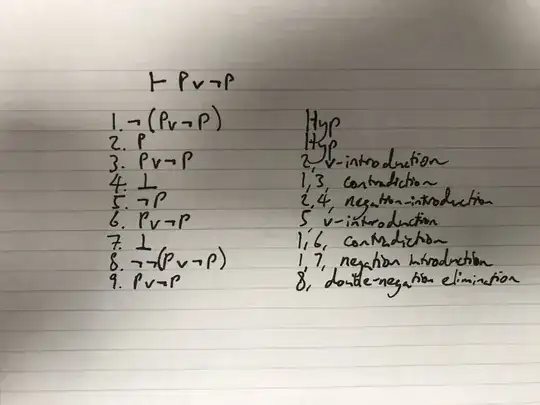 ⊢ P∨¬P
1. ¬(P∨¬P) Hyp
2. P Hyp
3. P∨¬P 2, ∨-introduction
4. ⊥ 1, 3, contradiction
5. ¬P 2, 4, negation-introduction
6. P∨¬P 5, ∨-introduction
7. ⊥ 1, 6, contradiction
8. ¬¬(P∨¬P) 1, 7, negation introduction
9. P∨¬P 8, double-negation elimination